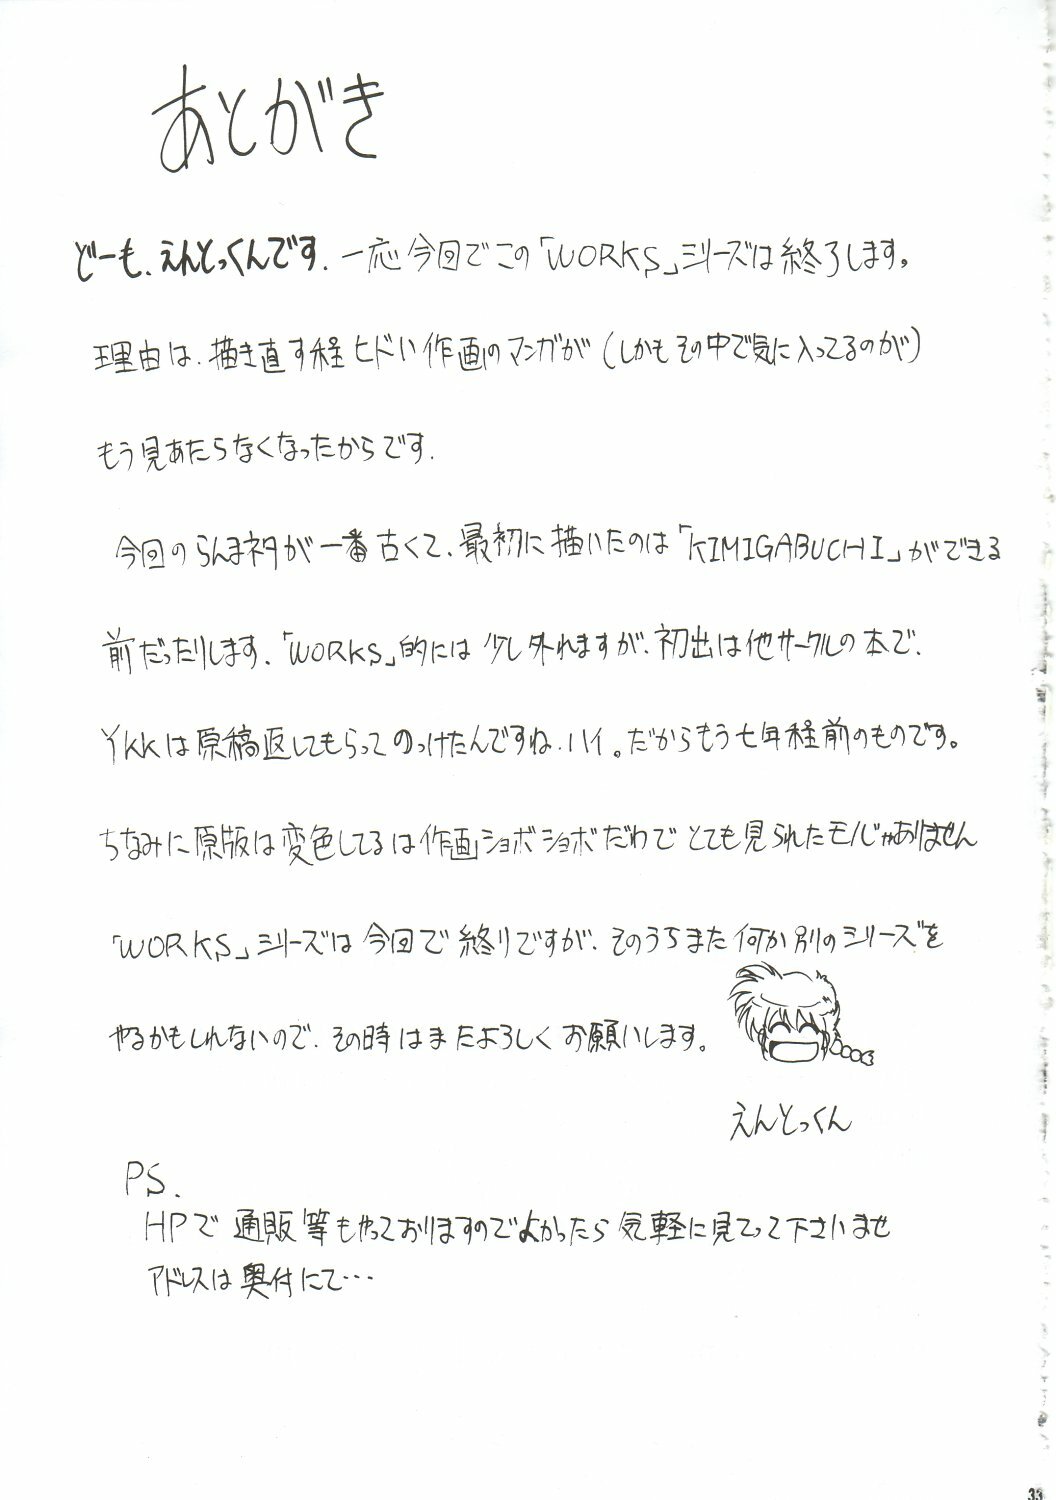 あとがき
どーも、えんとっくんです、一応今回でこの「WORKS」シリーズは終了します。
理由は、描き直す程ヒドい作画のマンガが(しかもその中で気に入ってるのが)
もう見あたらなくなったからです。
今回のらんまネタが一番古くて、最初に描いたのは「KIMIGABUCHI」ができる
前だったりします。「WORKS」的には少し外れますが、初出は他サークルの本で、
YKKは原稿返してもらってのっけたんですね、ハイ。だからもう七年程前のものです。
ちなみに原版は変色してるは作画ショボショボだわでとても見られたモノじゃありません
「WORKS」シリーズは今回で終りですが、そのうちまた何か別のシリーズを
やるかもしれないので、その時はまたよろしくお願いします。
えんとっくん
PS.
HPで通販等もやっておりますのでよかったら気軽に見てって下さいませ
アドレスは奥付にて…
33